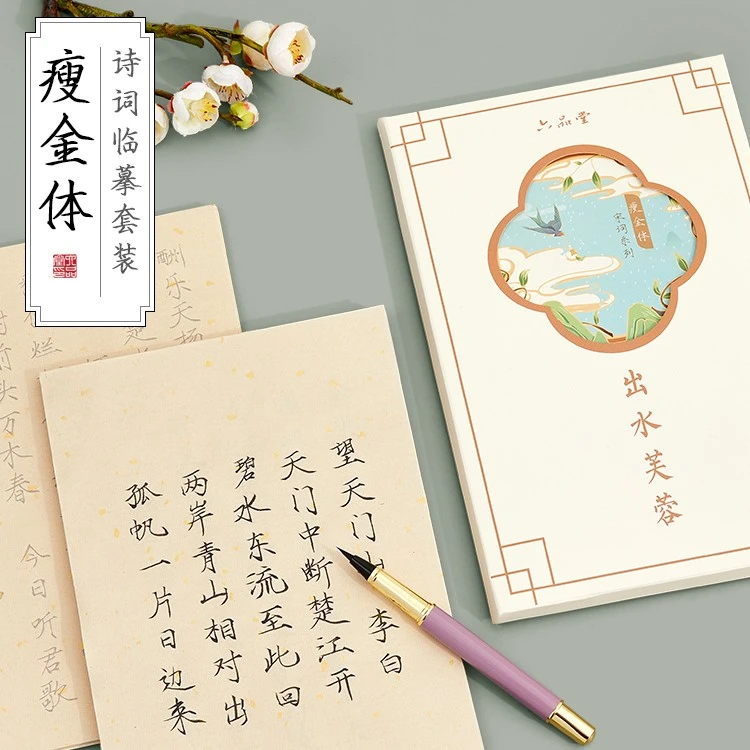 瘦金体
诗词临摹套装
六品堂
瘦金体
宋词系列
出水芙蓉
望天门山 李白
天门中断楚江开
碧水东流至此回
两岸青山相对出
孤帆一片日边来
酬
乐天扬
头万木春 今日听君歌